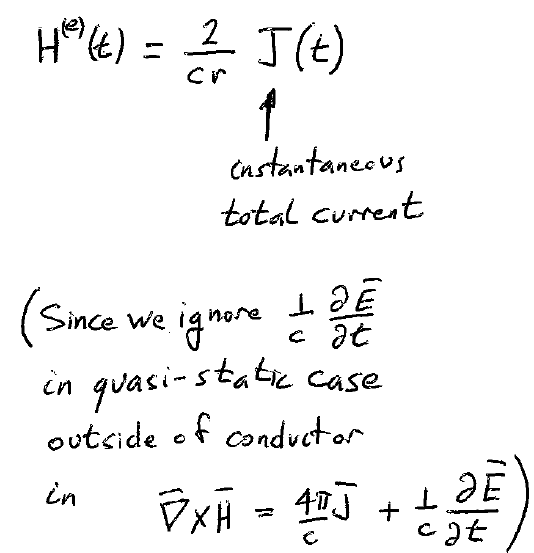 H^(e)(t) = 2/cr J(t)
instantaneous
total current
(Since we ignore 1/c ∂Ē/∂t
in quasi-static case
outside of conductor
in ∇̄×H̄ = 4π/c J̄ + 1/c ∂Ē/∂t)